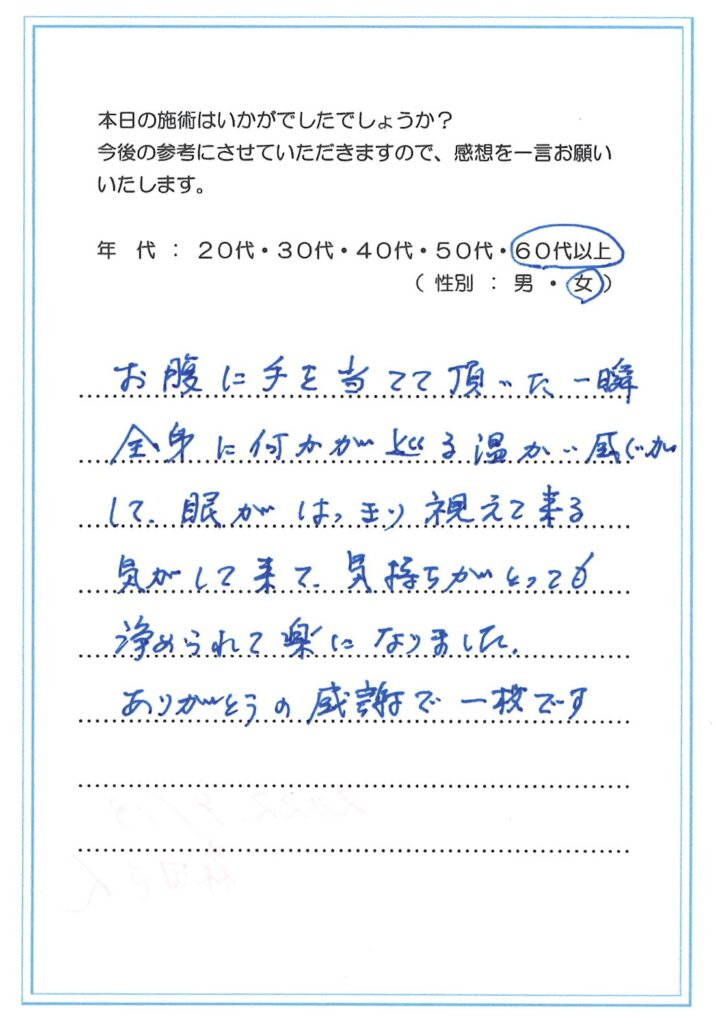 本日の施術はいかがでしたでしょうか？
今後の参考にさせていただきますので、感想を一言お願い
いたします。
年 代 ： ２０代・３０代・４０代・５０代・６０代以上
（ 性別 ： 男 ・ 女 ）
お腹に手を当てて頂いた一瞬
全身に何かが巡る温かい感じが
して、眼がはっきり視えて来る
気がして来て、気持ちがとっても
浄められて楽になりました。
ありがとうの感謝で一枚です